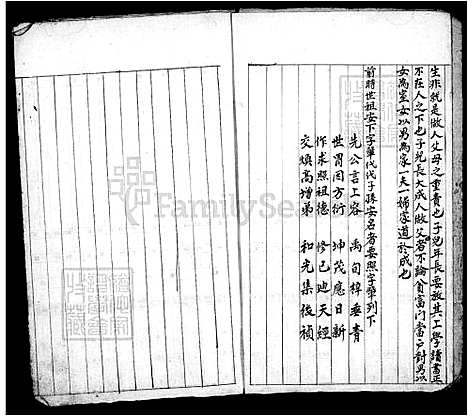 生非就是做人父母之重責也子兒年長要放其工學讀書正
不在人之下也子兒長大成人做父者不論貧富門當戶對男以
女為室女以男為家一夫一婦家道於成也
前時世祖安下字輩代代子孫安名者要照字輩列下
先公言上容 禹甸梓垂青
世冑因方衍 坤茂應日新
作求照祖德 修己迪天經
交煥高增弟 和光集後禎
FamilySearch